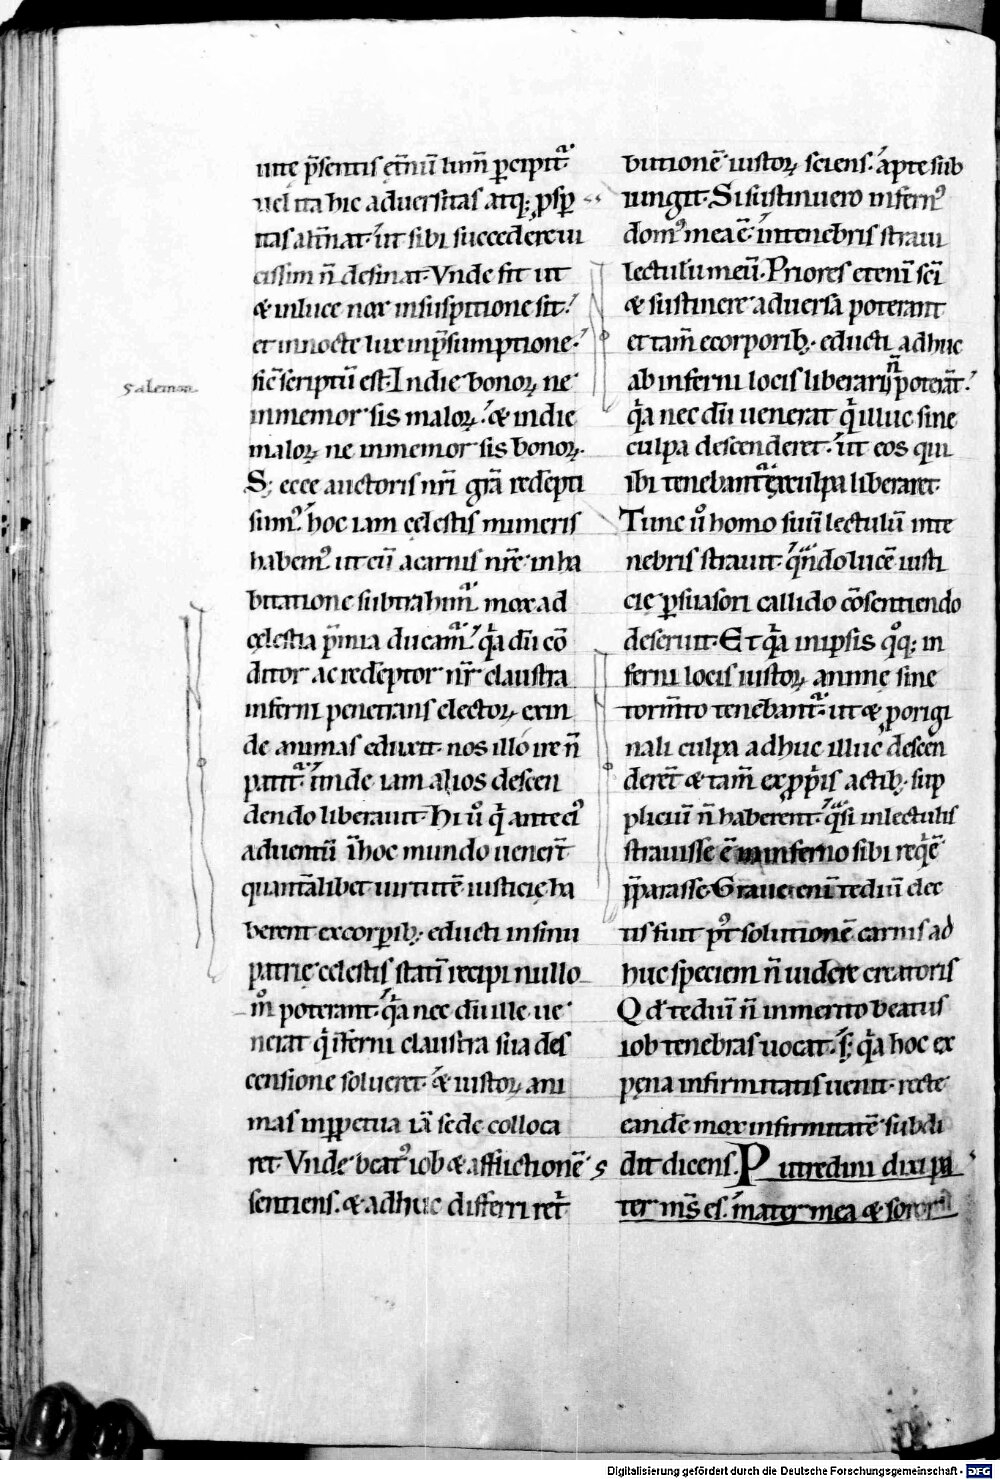 Salemon
uitę p̄sentis ęt̄nū lum̄ p̄cipit᷑.
uel ita hic aduersitas atq; ꝓsp̄
itas alt̄nat. ut sibi succedere ui
cissim n̄ desinat. Vnde fit ut
& in luce nox in suspitione sit.
et in nocte lux in p̄sumptione.
sic̄ scriptū est. In die bonoꝝ ne
inmemor sis maloꝝ. & in die
maloꝝ ne inmemor sis bonoꝝ.
S; ecce auctoris nr̄i gr̄a redēpti
sum᷒. hoc iam cęlestis muneris
habem᷒ ut cū a carnis nr̄e inha
bitatione subtrahim᷑. mox ad
cęlestia p̄mia ducam᷑. q̇a dū cō
ditor ac redēptor nr̄ claustra
inferni penetrans electoꝝ exin
de animas eduxit. nos illo ire n̄
patit᷑. unde iam alios descen
dendo liberauit. Hi u̇ q̇ ante ei᷒
aduentū ī hoc mundo uener̄t
quantālibet uirtutē iusticię ha
berent ex corꝑib; educti in sinu
patrię cęlestis statī recipi nullo
m̊ poterant. q̇a nec dū ille ue
nerat q̇ īferni claustra sua des
censione solueret. & iustoꝝ ani
mas in ꝑpetua iā sede colloca
ret. Vnde beat᷒ iob & afflictionē
sentiens. & adhuc differri ret̄
butionē iustoꝝ sciens. apte sub
iungit. Si sustinuero infern᷒
dom᷒ mea ē. in tenebris straui
lectulū meū. Priores etenī sc̄i
& sustinere aduersa poterant
et tam̄ e corporib; educti adhuc
ab inferni locis liberari n̄ poterāt.
q̇a nec dū uenerat q̇ illuc sine
culpa descenderet. ut eos qui
ibi tenebant᷑ ex culpa liberaret.
Tunc u̇ homo suū lectulū in te
nebris strauit. q̄ndo lucē iusti
cię ꝑsuasori callido cōsentiendo
deseruit. Et q̇a in ipsis q̊q; in
ferni locis iustoꝝ animę sine
torm̄to tenebant᷑. ut & ꝑ origi
nali culpa adhuc illuc descen
derēt & tam̄ ex ꝓpriis actib; sup
pliciū n̄ haberent. q̄si in lectulis
strauisse ē in inferno sibi reqͥē
p̄parasse. Graue enī tediū elec
tis fuit p᷒t solutionē carnis ad
huc speciem n̄ uidere creatoris
Qd̄ tediū n̄ inmerito beatus
iob tenebras uocat. s; q̇a hoc ex
pęna infirmitatis uenit. recte
eandē mox infirmitatē subdi
dit dicens. Putredini dixi pa
ter m̄s es. mater mea & soror
Digitalisierung gefördert durch die Deutsche Forschungsgemeinschaft - DFG